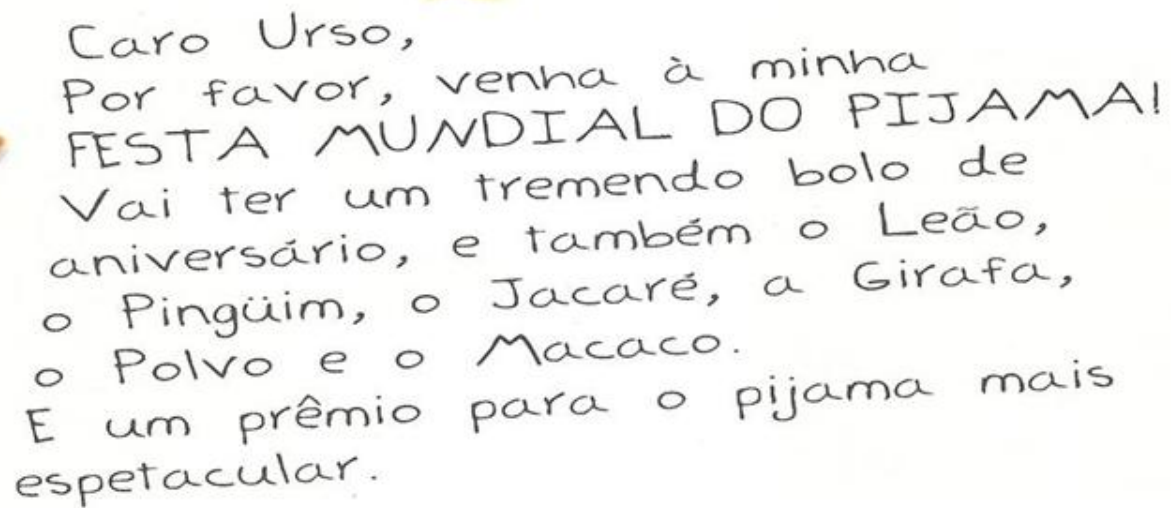 Caro Urso,
Por favor, venha à minha
FESTA MUNDIAL DO PIJAMA!
Vai ter um tremendo bolo de
aniversário, e também o Leão,
o Pingüim, o Jacaré, a Girafa,
o Polvo e o Macaco.
E um prêmio para o pijama mais
espetacular.